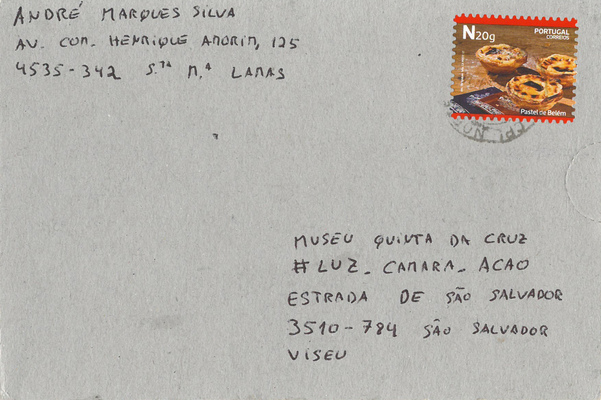 ANDRÉ MARQUES SILVA
AV. COM. HENRIQUE AMORIM, 125
4535-342 S.TA M.ª LAMAS
N20g
PORTUGAL
CORREIOS
Pastel de Belém
MUSEU QUINTA DA CRUZ
#LUZ_CAMARA_ACAO
ESTRADA DE SÃO SALVADOR
3510-784 SÃO SALVADOR
VISEU